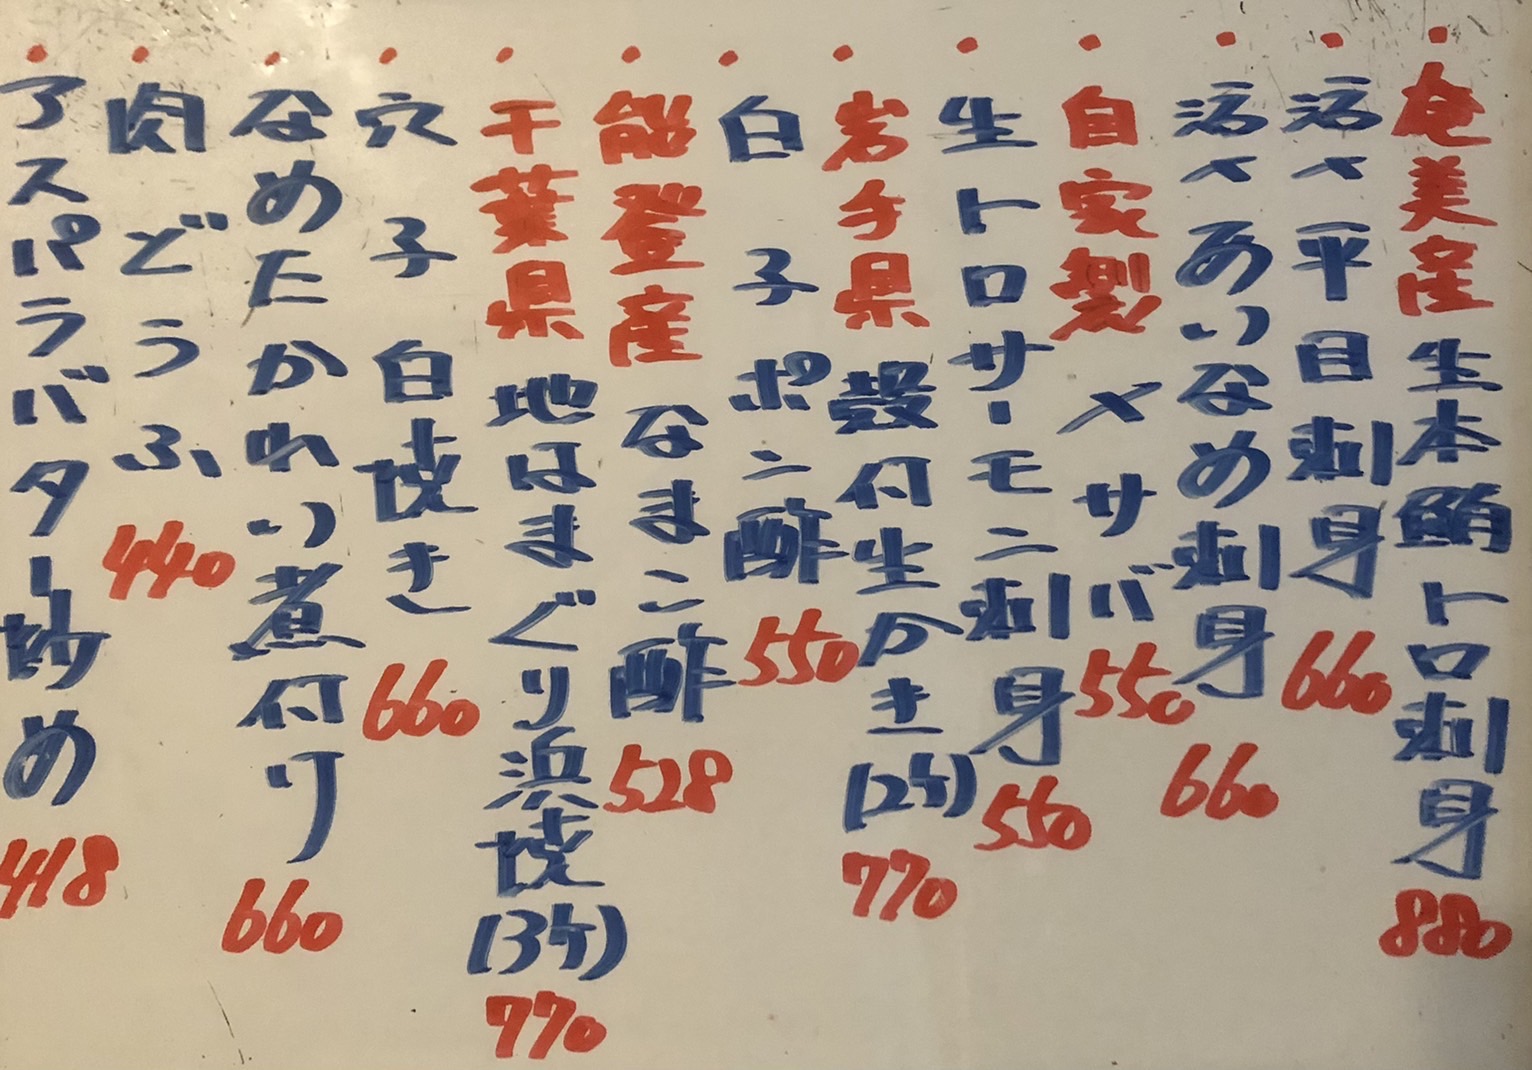 ・奄美産 生本鮪トロ刺身 880
・活〆平目刺身 660
・活〆あいなめ刺身 660
・自家製 〆サバ 550
・生トロサーモン刺身 550
・岩手県 殻付生かき(2ケ) 770
・白子ポン酢 550
・能登産 なまこ酢 528
・千葉県 地はまぐり浜焼(3ケ) 770
・穴子白焼き 660
・なめたかれい煮付り 660
・肉どうふ 440
・アスパラバター炒め 418